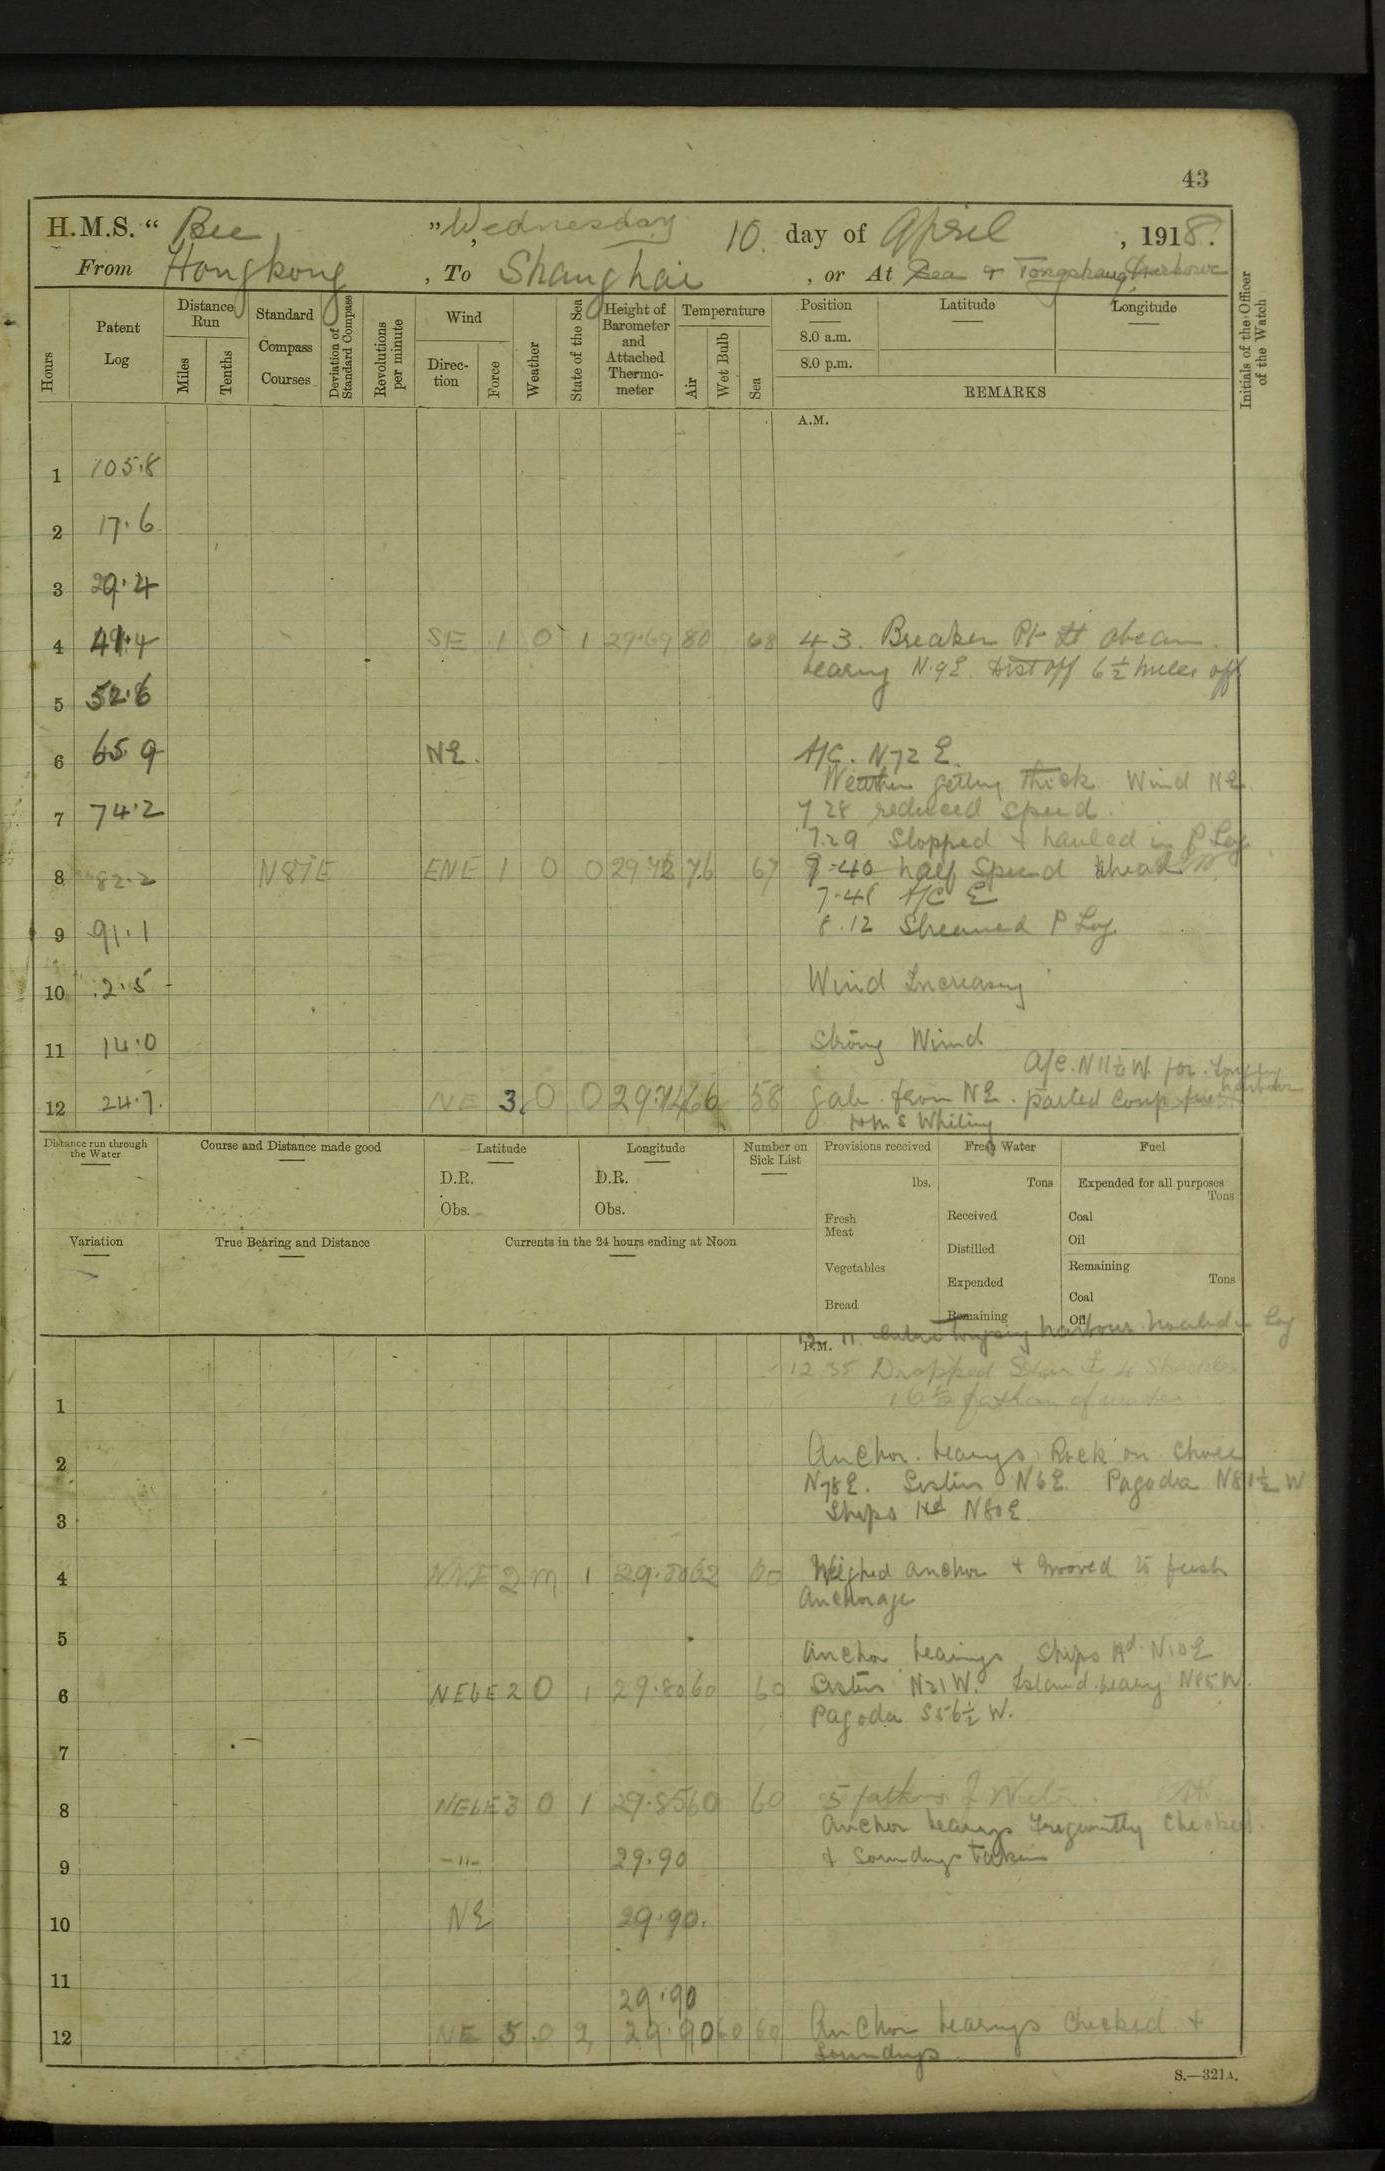 43
H.M.S. “ Bee ” Wednesday 10. day of April , 1918.
From Hongkong , To Shanghai , or At Sea &
Hours
Patent Log
Distance Run
Miles
Tenths
Standard Compass Courses
Deviation of Standard Compass
Revolutions per minute
Wind
Direction
Force
Weather
State of the Sea
Height of Barometer and Attached Thermometer
Temperature
Air
Wet Bulb
Sea
Position
8.0 a.m.
8.0 p.m.
Latitude
Longitude
REMARKS
Initials of the Officer of the Watch
A.M.
1 105.8
2 17.6
3 29.4
4 41.4 SE 1 0 1 29.69 80 68 4 3. Breaker Pt Lt abeam
bearing N.9E. Dist off 6½ miles off
5 52.6
6 65.9 NE. A/C. N72E.
Weather getting thick Wind NE
7 74.2 7 28 reduced speed.
7.29 Stopped & hauled in P Log
8 82.2 N87E ENE 1 0 0 29.72 76 67 7-40 half Speed ahead
7.41 A/C E
9 91.1 8.12 Streamed P Log.
10 2.5 Wind Increasing
11 14.0 Strong Wind
A/C. N11½W. for
12 24.7 NE 3. 0 0 29.74 66 58 gale from NE. parted comp from
HMS Whiting
Distance run through the Water
Course and Distance made good
Latitude
D.R.
Obs.
Longitude
D.R.
Obs.
Number on Sick List
Provisions received
lbs.
Fresh Meat
Vegetables
Bread
Fresh Water
Tons
Received
Distilled
Expended
Remaining
Fuel
Expended for all purposes
Tons
Coal
Oil
Remaining
Tons
Coal
Oil
Variation
True Bearing and Distance
Currents in the 24 hours ending at Noon
P.M.
12 11 harbour hauled in Log
12 35 Dropped 4 Shackles
1 6½ fathom of water
2 Anchor bearings Rock on shore
N78E. Sisters N6E. Pagoda N81½W
3 Ships Hd N80E
4 NNE 2 m 1 29.80 62 60 Weighed anchor & moved to fresh
Anchorage
5 Anchor bearings Ships Hd. N10E
6 NEbE 2 0 1 29.80 60 60 Sisters N21W. Island bearing N85W.
Pagoda S56½W.
7
8 NEbE 3 0 1 29.85 60 60 5 fathoms of Water.
Anchor bearings frequently checked
9 -"- 29.90 & Soundings taken
10 NE 29.90.
11 29.90
12 NE 5 .0 2 29.90 60 60 Anchor bearings checked &
Soundings.
S.—321A.